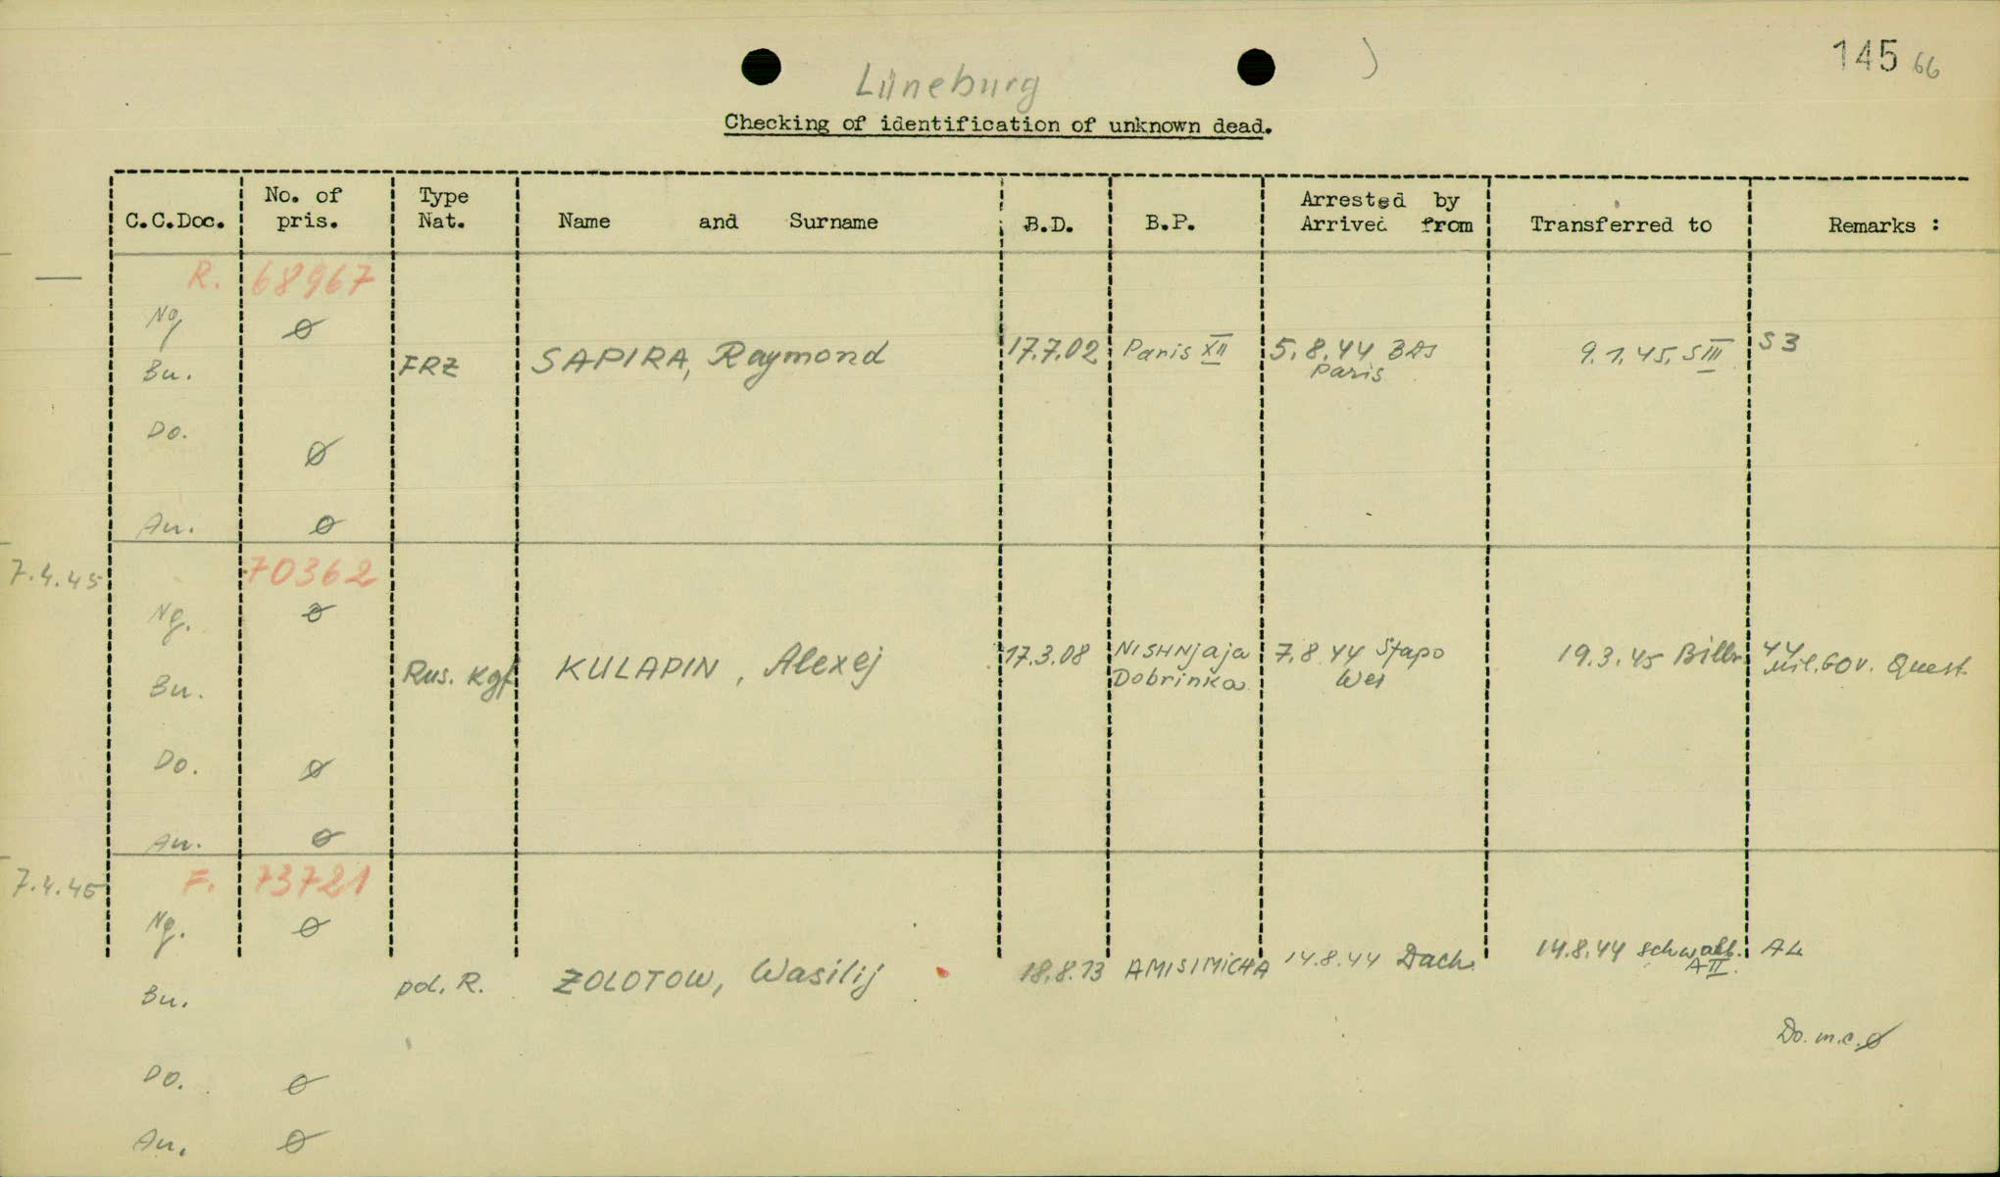 145 66
Lüneburg
Checking of identification of unknown dead.
C.C.Doc. No. of pris. Type Nat. Name and Surname B.D. B.P. Arrested by Arrived from Transferred to Remarks :
— R. 68967
Ng ø
Bu. FRZ SAPIRA, Raymond 17.7.02 Paris XII 5.8.44 BdS Paris 9.1.45. SIII S3
Do. ø
Au. ø
7.4.45 70362
Ng. ø
Bu. Rus. Kgf KULAPIN, Alexej 17.3.08 NISHNjaja Dobrinka 7.8.44 Stapo Wes 19.3.45 Billr. 44 Mil.Gov. Quest
Do. ø
Au. ø
7.4.45 F. 73721
Ng. ø
Bu. pol. R. ZOLOTOW, Wasilij 18.8.13 AMISIMICHA 14.8.44 Dach. 14.8.44 Schwalb. AII. A4
Do. m.c. ø
Do. ø
Au. ø